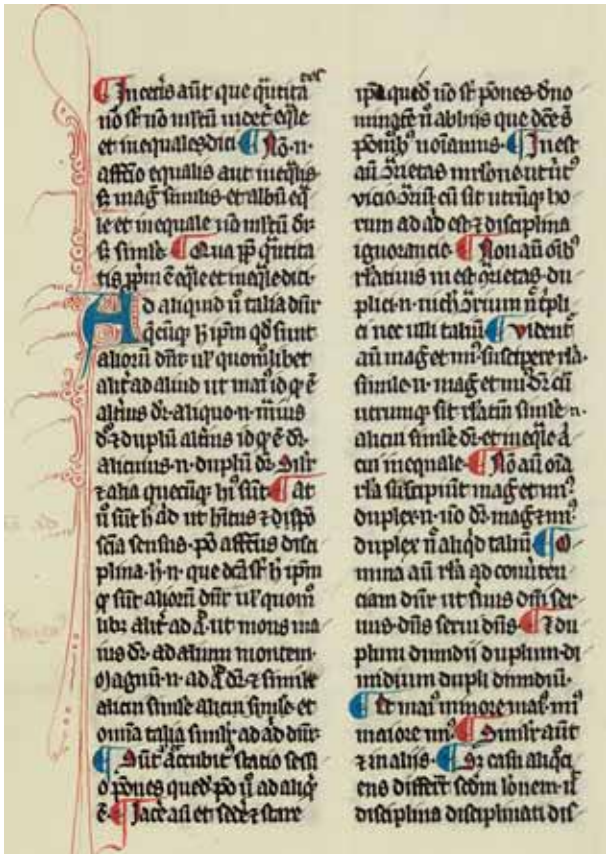 In ceteris aūt que q̄ntita
nō st̄ nō multū videt᷑ eq̄le
et inequale dici Nō.n.
affectio equalis aut ineq̄lis
sꝫ maḡ similis et albū eq̄
le et inequale nō multū dr̄
sꝫ simile Qua ꝓp̄ q̄ntita
tis ꝓpriū ē eq̄le et ineq̄le dici.
Ad aliquid v̄ talia dn̄r
q̄cūqꝫ h̄ ip̄m qd̄ sunt
alioꝝ dn̄r ul̓ quomōlibet
alit̓ ad aliud ut mai᷒ id q̄ ē
alti᷒ dr̄ aliquo.n.
dr̄ ⁊ duplū alti᷒ id q̄ ē dr̄.
alicuius.n. duplū dr̄. Silr̄
⁊ alia quecūqꝫ hi᷒ sūt At
v̄ sūt h̄ ad ut hitus ⁊ dispō
scīa sensus. pō disci
plina.h̄.n. que dcā st̄ h̄ ip̄m
q̄ sūt alioꝝ dn̄r ul̓ quom̄
libꝫ alit̓ ad ā. ut mons ma
ius dr̄ ad alium montem.
Magnū.n. ad ā dr̄ ⁊ simile
alicui simile alicui simile et
om̄ia talia simil̓r ad ad dn̄r.
Sūt accubit᷒ statio sessi
o pōnes qued̄ pō v̄ ad aliq̄
ē. Jacē aū et sedē ⁊ stare
ip̄a qued̄ nō st̄ pōnes dno
minatē v̄ ab hijs que dcē st̄
pōnibꝫ noīamus. Inest
aū ꝯrietas in rlōne ut v̓t᷒
vicio ꝯriū ē cū sit utrūqꝫ ho
rum ad ad est ⁊ disciplina
ignorancie. Non aū oībꝫ
rlatiuis inest ꝯrietas. du
plici.n. nich̓ ꝯrium n̄ tpli
ci nec ulli taliū Videnť
aū mag̓ et mi᷒ suscipere rl̄a.
simile.n. mag̓ et mi᷒ dr̄ cū
utrumqꝫ sit rlatiū simile.n.
alicui simile dr̄. et ineq̄le ā
cui inequale. Nō aū oīa
rl̄a suscipiunt mag̓ et mi᷒
duplex.n. nō dr̄ mag̓ ⁊ mi᷒
duplex n̄ aliqd̄ taliū O
mnia aū rl̄a ad conuerten
ciam dn̄r ut s̓uus dn̄i ser
uus. dn̄s serui dn̄s. ⁊ du
plum dimidij duplum. di
midium dupli dimidiū.
Et mai᷒ minore mai᷒. mi᷒
maiore mi᷒ Simil̓r aūt
⁊ in alijs. Sꝫ casū aliqͦci
ens differt scd̄m lōnem. ut
disciplina disciplinati dis